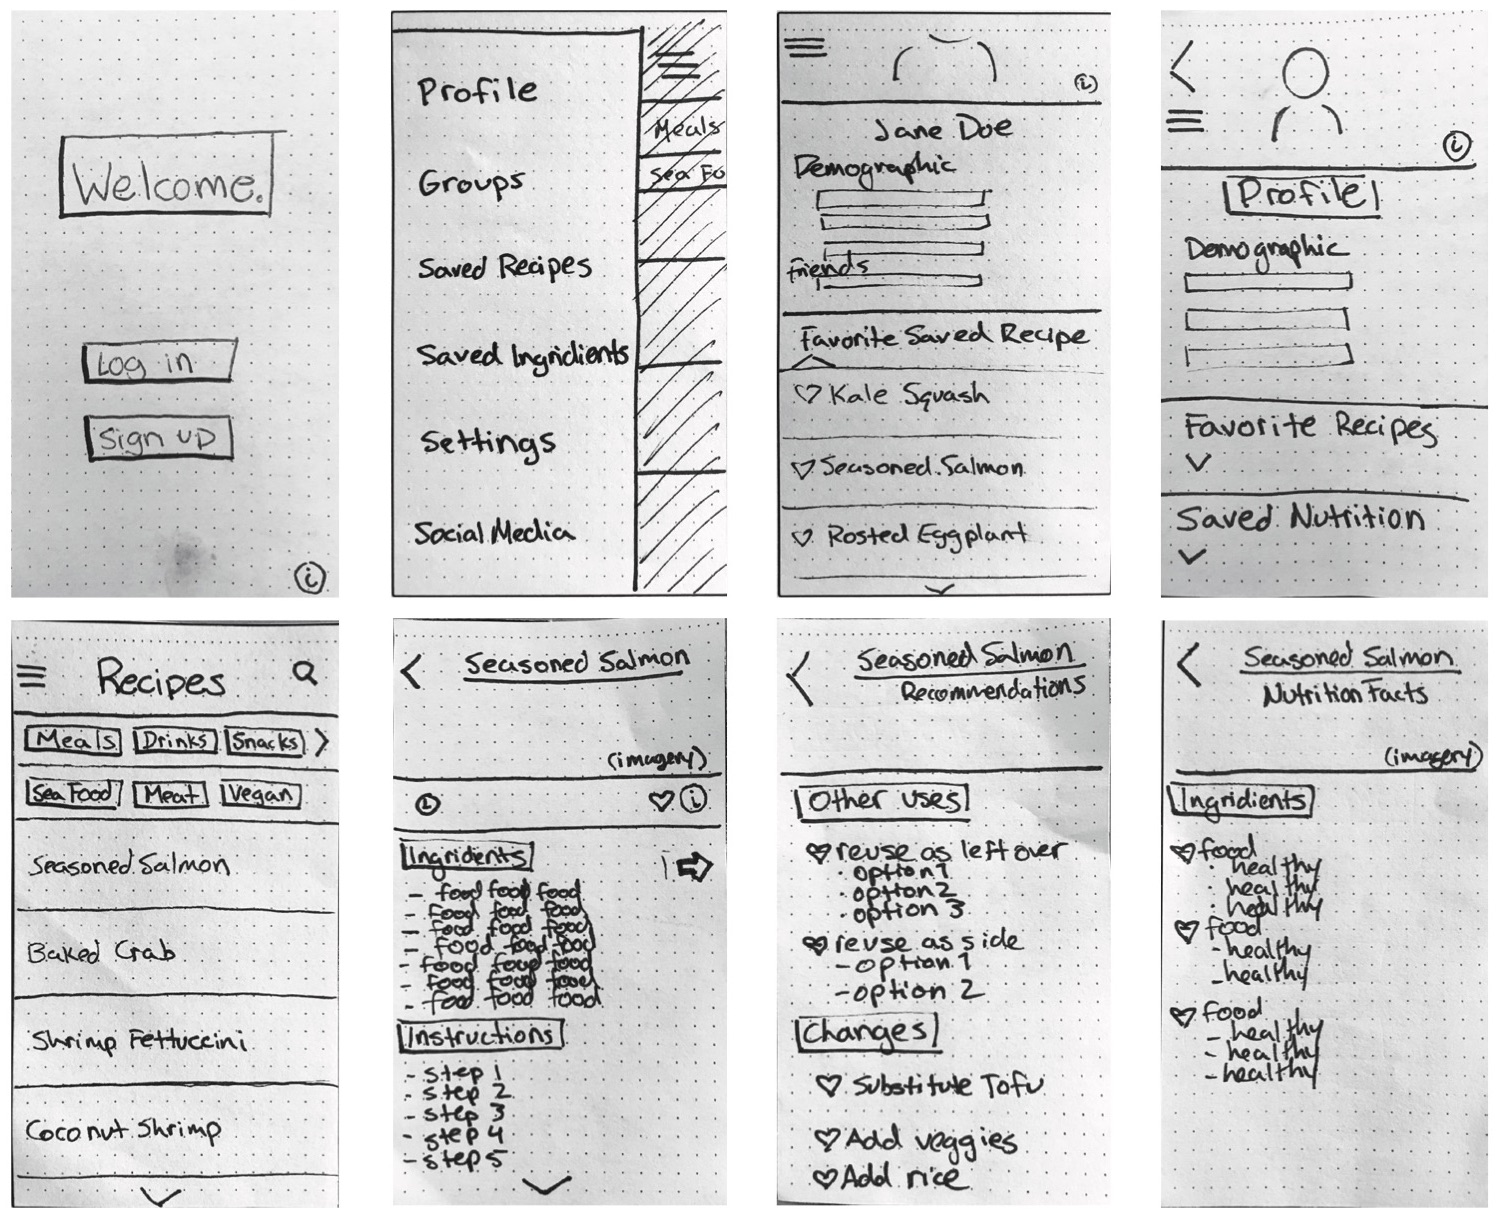 Welcome.
Log in
Sign up
i
Profile
Groups
Saved Recipes
Saved Ingridients
Settings
Social Media
Meals
Sea Fo
i
Jane Doe
Demographic
friends
Favorite Saved Recipe
Kale Squash
Seasoned Salmon
Rosted Eggplant
i
Profile
Demographic
Favorite Recipes
Saved Nutrition
Recipes
Meals Drinks Snacks >
Sea Food Meat Vegan
Seasoned Salmon
Baked Crab
Shrimp Fettuccini
Coconut Shrimp
Seasoned Salmon
(imagery)
i
Ingridents
- food food food
- food food food
- food food food
- food food food
- food food food
- food food food
- food food food
Instructions
- step 1
- step 2
- step 3
- step 4
- step 5
Seasoned Salmon
Recommendations
Other uses
reuse as left over
· option 1
· option 2
· option 3
reuse as side
- option 1
- option 2
Changes
Substitute Tofu
Add veggies
Add rice
Seasoned Salmon
Nutrition Facts
(imagery)
Ingridients
food
· healthy
· healthy
· healthy
food
- healthy
- healthy
food
- healthy
- healthy
- healthy